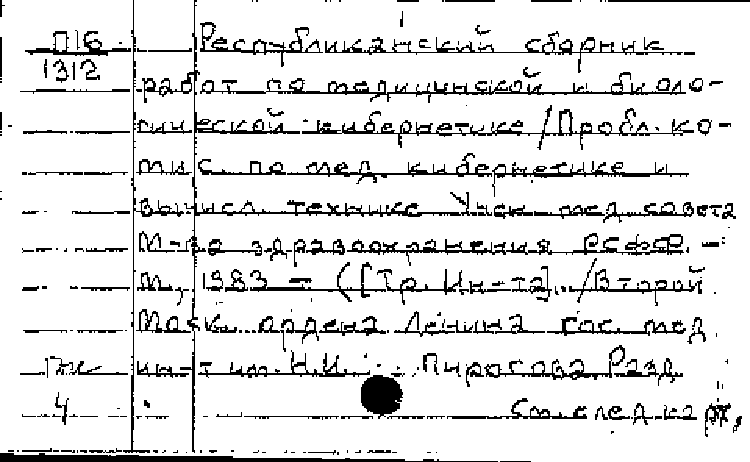 П16
1312
Республиканский сборник
работ по медицинской и биоло-
гической кибернетике / Пробл. ко-
мис. по мед. кибернетике и
вычисл. технике Учен. мед. совета
М-ва здравоохранения РСФСР. -
М., 1983 - ([Тр. Ин-та] / Второй
Моск. ордена Ленина гос. мед.
ин-т им. Н.И. Пирогова. Разд
4 См. след. карт,